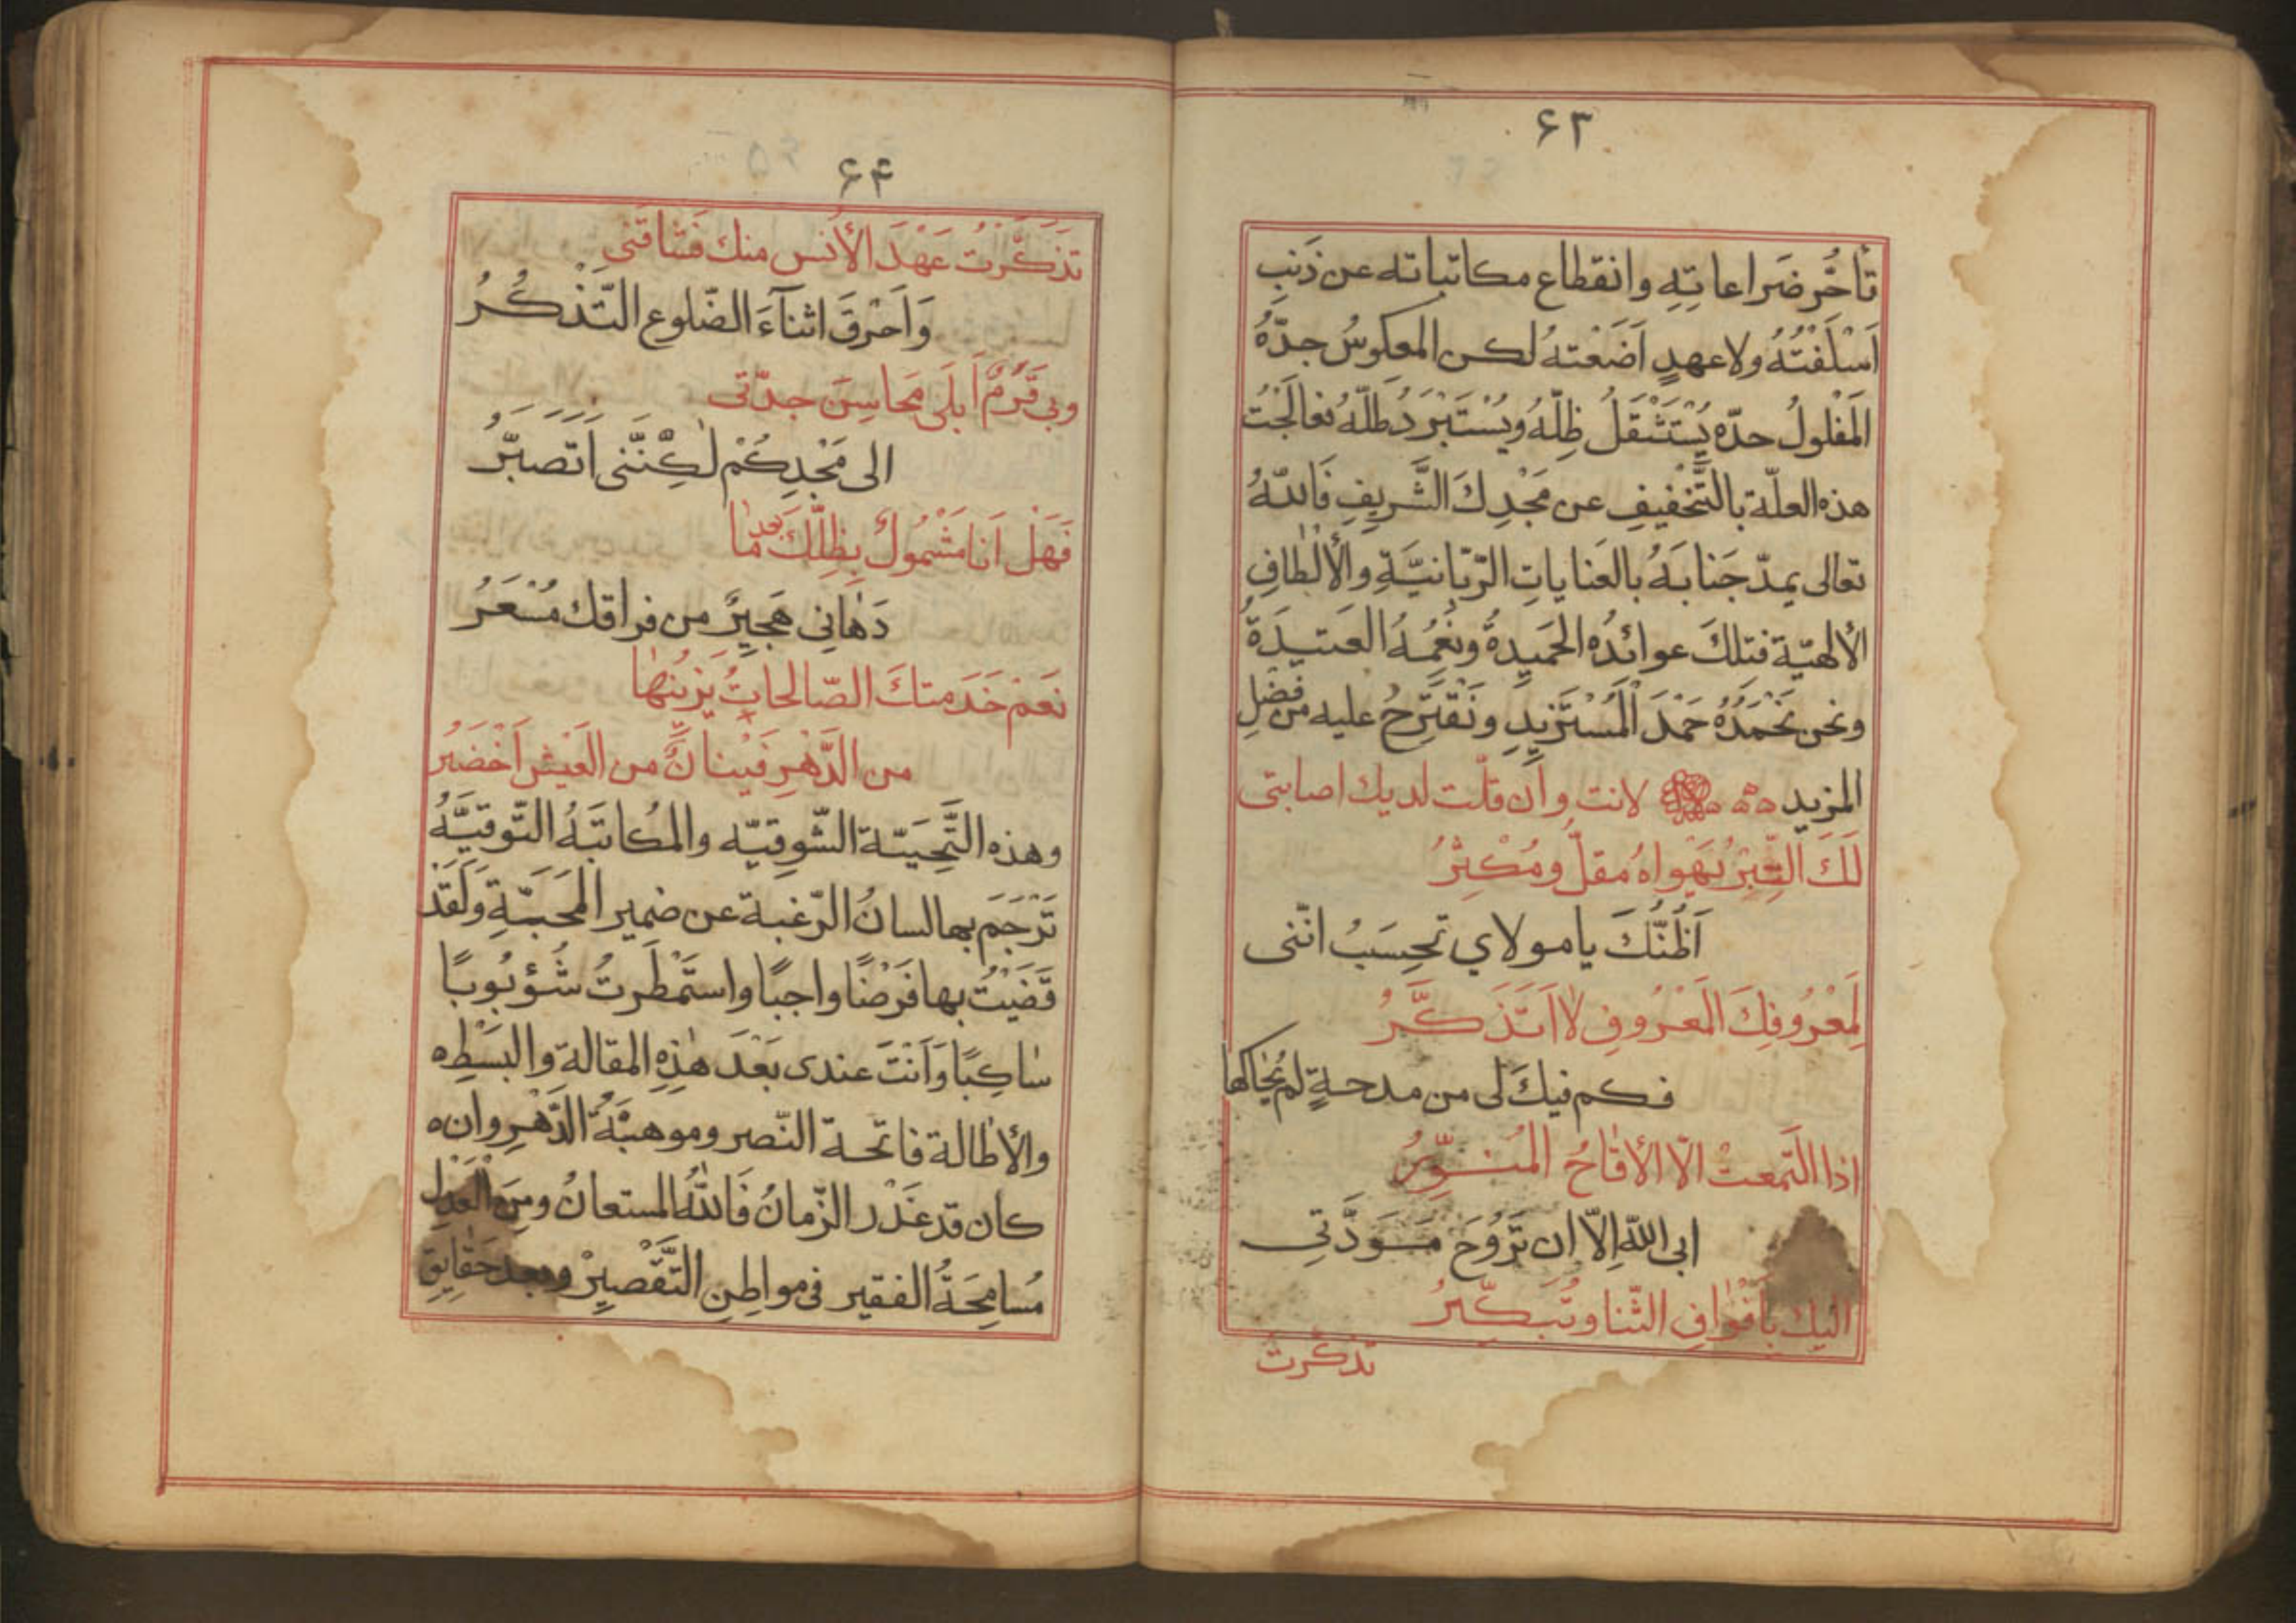 ۶۳
تأخُّر ضَراعاتِهِ وانقطاع مكاتباته عن ذَنبٍ
اَسْلَفْتُهُ ولا عهدٍ اَضَعْتهُ لكن المعكوسُ جدّهُ
المَفْلولُ حدّه يُسْتَثْقَلُ ظِلّهُ ويُسْتَبْرَدُ طلّهُ فعالَجْتُ
هذه العلّة بالتَّخفيفِ عن مَجْدِكَ الشَّريفِ فَاللهُ
تعالى يمدّ جَنابَهُ بالعَناياتِ الرّبّانيَّةِ والأَلْطافِ
الألهيّة فتلكَ عوائدُه الحَميدةُ ونِعَمُهُ العتيدَةُ
ونحن نَحْمَدُهُ حَمْدَ المُسْتَزيدِ ونَقْتَرِحُ عليه من فَضْلِ
المزيد لانت وان قلّت لديك اصابتى
لَكَ التِّبْرُ يَهْواهُ مقلّ ومُكْثِرُ
اَظُنُّكَ يا مولاي تحسَبُ انّنى
لِمَعْرُوفِكَ المَعْرُوفِ لا اَتَذَكَّرُ
فكم فيكَ لى من مدحةٍ لم يُحَاكها
اذا التَمعتْ الّا الأقاحُ المُنَوِّرُ
ابى اللّه اِلّا ان تَرُوحَ مَوَدَّتِى
اليك بِأَفْوافِ الثّنا وتُبَكّرُ
تذكّرت
۶۴
تَذَكَّرْتُ عَهْدَ الأُنس منك فشاقَنى
وَاَحْرَقَ اثنآءَ الضّلوع التَّذَكُّرُ
وبى قَرَمٌ اَبلَى مَحاسِنَ جدّتى
الى مَجْدِكُمْ لٰكِنَّنى اَتَصبَّرُ
فَهَلْ اَنا مَشْمُولٌ بِظِلِّكَ بَعدَ مٰا
دَهٰانِى هَجيرٌ من فراقك مُسْعَرُ
نَعَمْ خَدَمتكَ الصّالحاتُ يَزينهٰا
من الدَّهْرِ فَيْنانٌ من العَيْشِ اَخْضَرُ
وهذه التَّحِيَّة الشّوقيّه والمُكاتَبَهُ التّوقيَّهُ
تَرْجَمَ بها لسانُ الرّغبة عن ضمير المَحَبَّةِ وَلَقَدْ
قَضَيْتُ بها فَرْضًا واجبًا واستَمْطَرتُ شُؤبُوبًا
سٰاكِبًا وَاَنْتَ عندى بَعْدَ هٰذِهِ المقالة والبَسْطِه
والأطٰالة فاتحة النّصر وموهبَةُ الدَّهْرِ وان
كان قد غَدْر الزّمانُ فَاللهُ المستعانُ ومِنَ العَدْلِ
مُسامحَةُ الفقير فى مواطِن التَّقْصيرِ وبعد حَقٰايِقِ